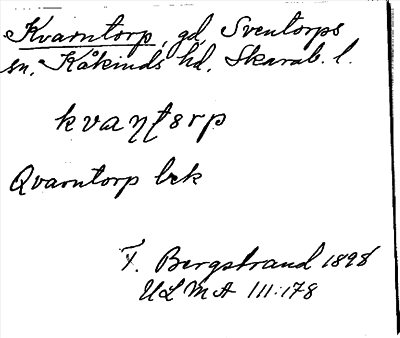 Kvarntorp, gd, Sventorps
sn, Kåkinds hd, Skarab. l.
kvaɳʈɵrp
Qvarntorp bek
T. Bergstrand 1898
ULMA 111:178